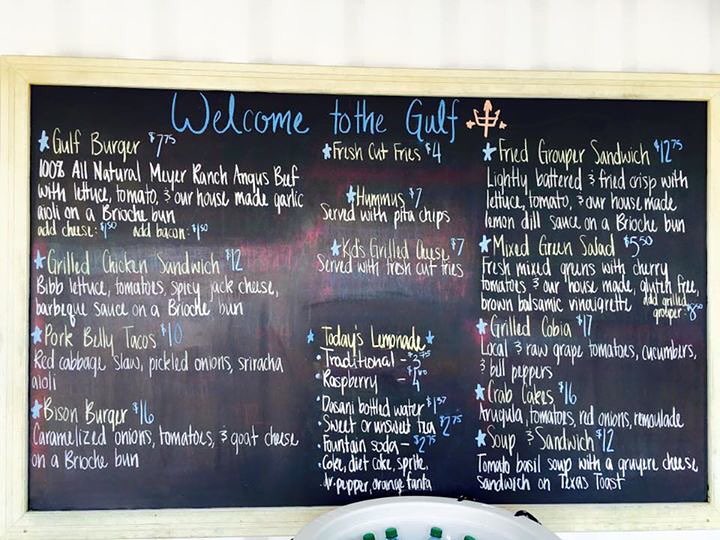 Welcome to the Gulf
*Gulf Burger $7.75
100% All Natural Meyer Ranch Angus Beef
with lettuce, tomato, & our house made garlic
aioli on a Brioche bun
add cheese: $1.50 add bacon: $1.50
*Grilled Chicken Sandwich $12
Bibb lettuce, tomatoes, spicy jack cheese,
barbeque sauce on a Brioche bun
*Pork Belly Tacos $10
Red cabbage slaw, pickled onions, sriracha
aioli
*Bison Burger $16
Caramelized onions, tomatoes, & goat cheese
on a Brioche bun
*Fresh Cut Fries $4
*Hummus $7
Served with pita chips
*Kid's Grilled Cheese $7
Served with fresh cut fries
*Today's Lemonade*
• Traditional - $2.75
• Raspberry - 4
• Dasani bottled water $1.37
• Sweet or unsweet tea $2.75
• Fountain soda - $2.75
• Coke, diet coke, sprite,
• dr. pepper, orange fanta
*Fried Grouper Sandwich $12.75
Lightly battered & fried crisp with
lettuce, tomato, & our house made
lemon dill sauce on a Brioche bun
*Mixed Green Salad $5.50
Fresh mixed greens with cherry
tomatoes & our house made, gluten free,
brown balsamic vinaigrette add grilled
grouper: $8.50
*Grilled Cobia $17
Local & raw grape tomatoes, cucumbers,
& bell peppers
*Crab Cakes $16
Arugula, tomatoes, red onions, remoulade
*Soup & Sandwich $12
Tomato basil soup with a gruyere cheese
sandwich on Texas Toast